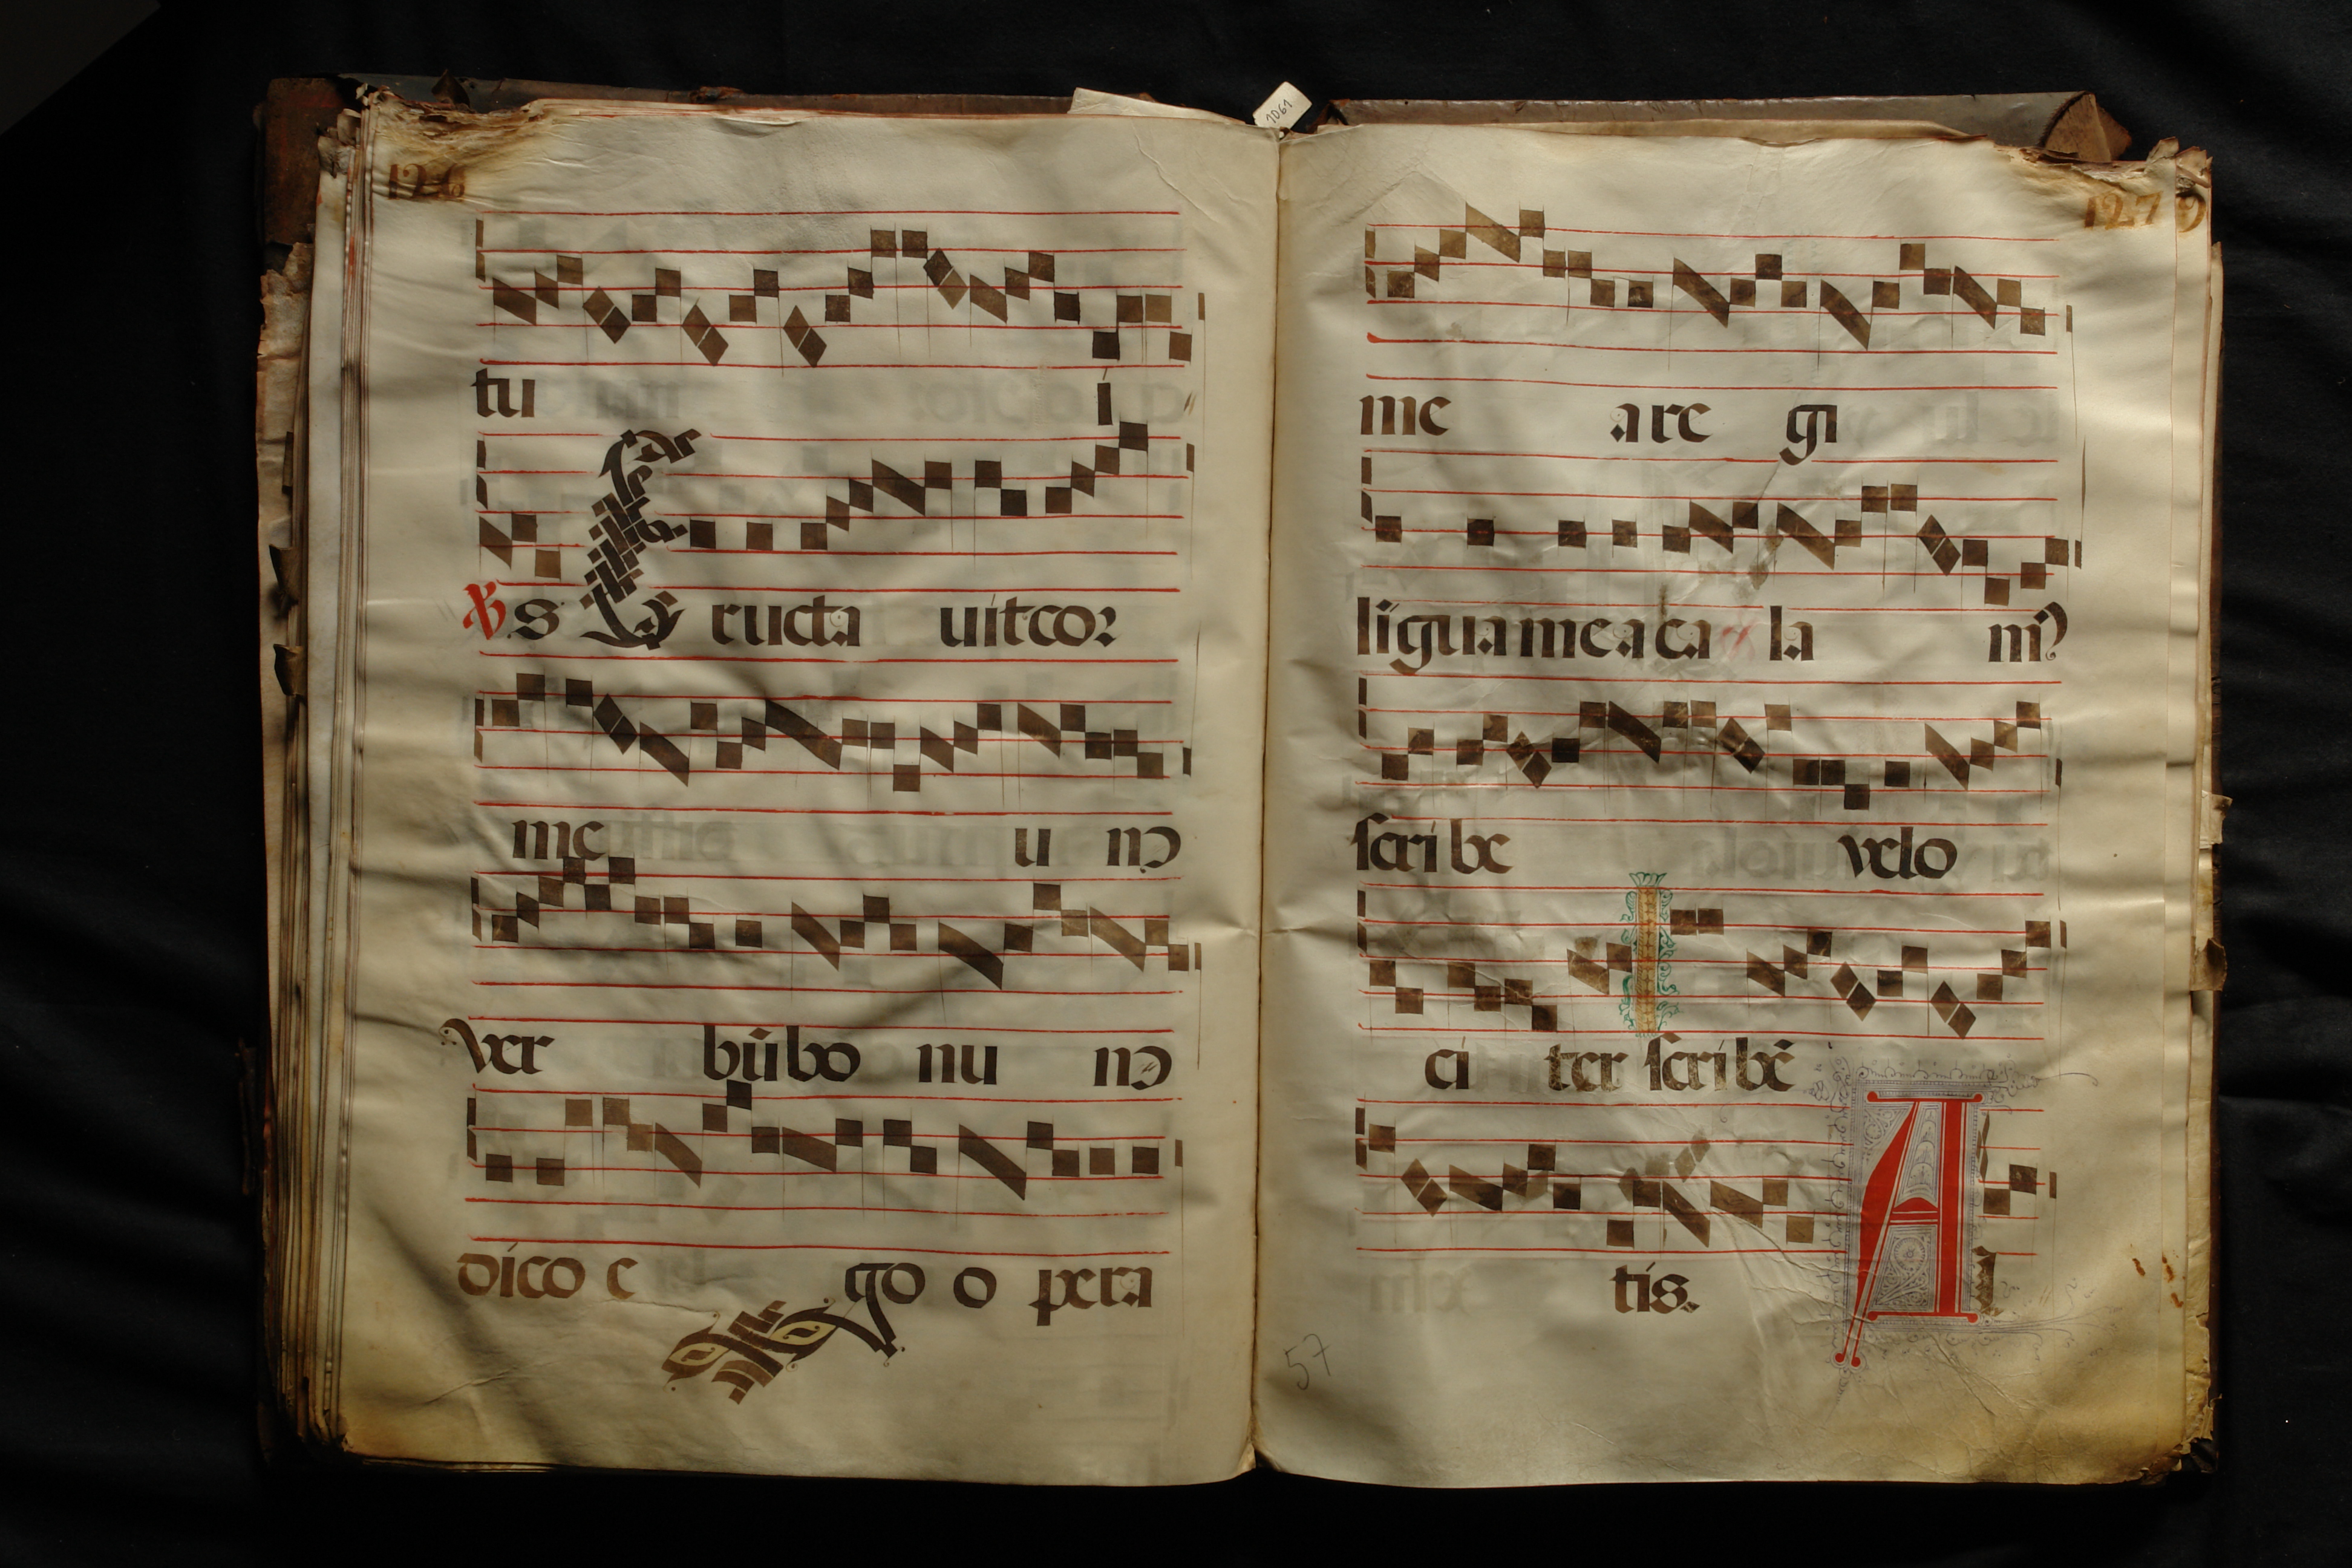 1061
126
tu i
℣s Eructa uit cor
me u nɔ
ver bū bo nu nɔ
dico e go o pera
127
me a re gi
ligua mea ca la m9
scribe velo
ci ter scribē
tis. A
57